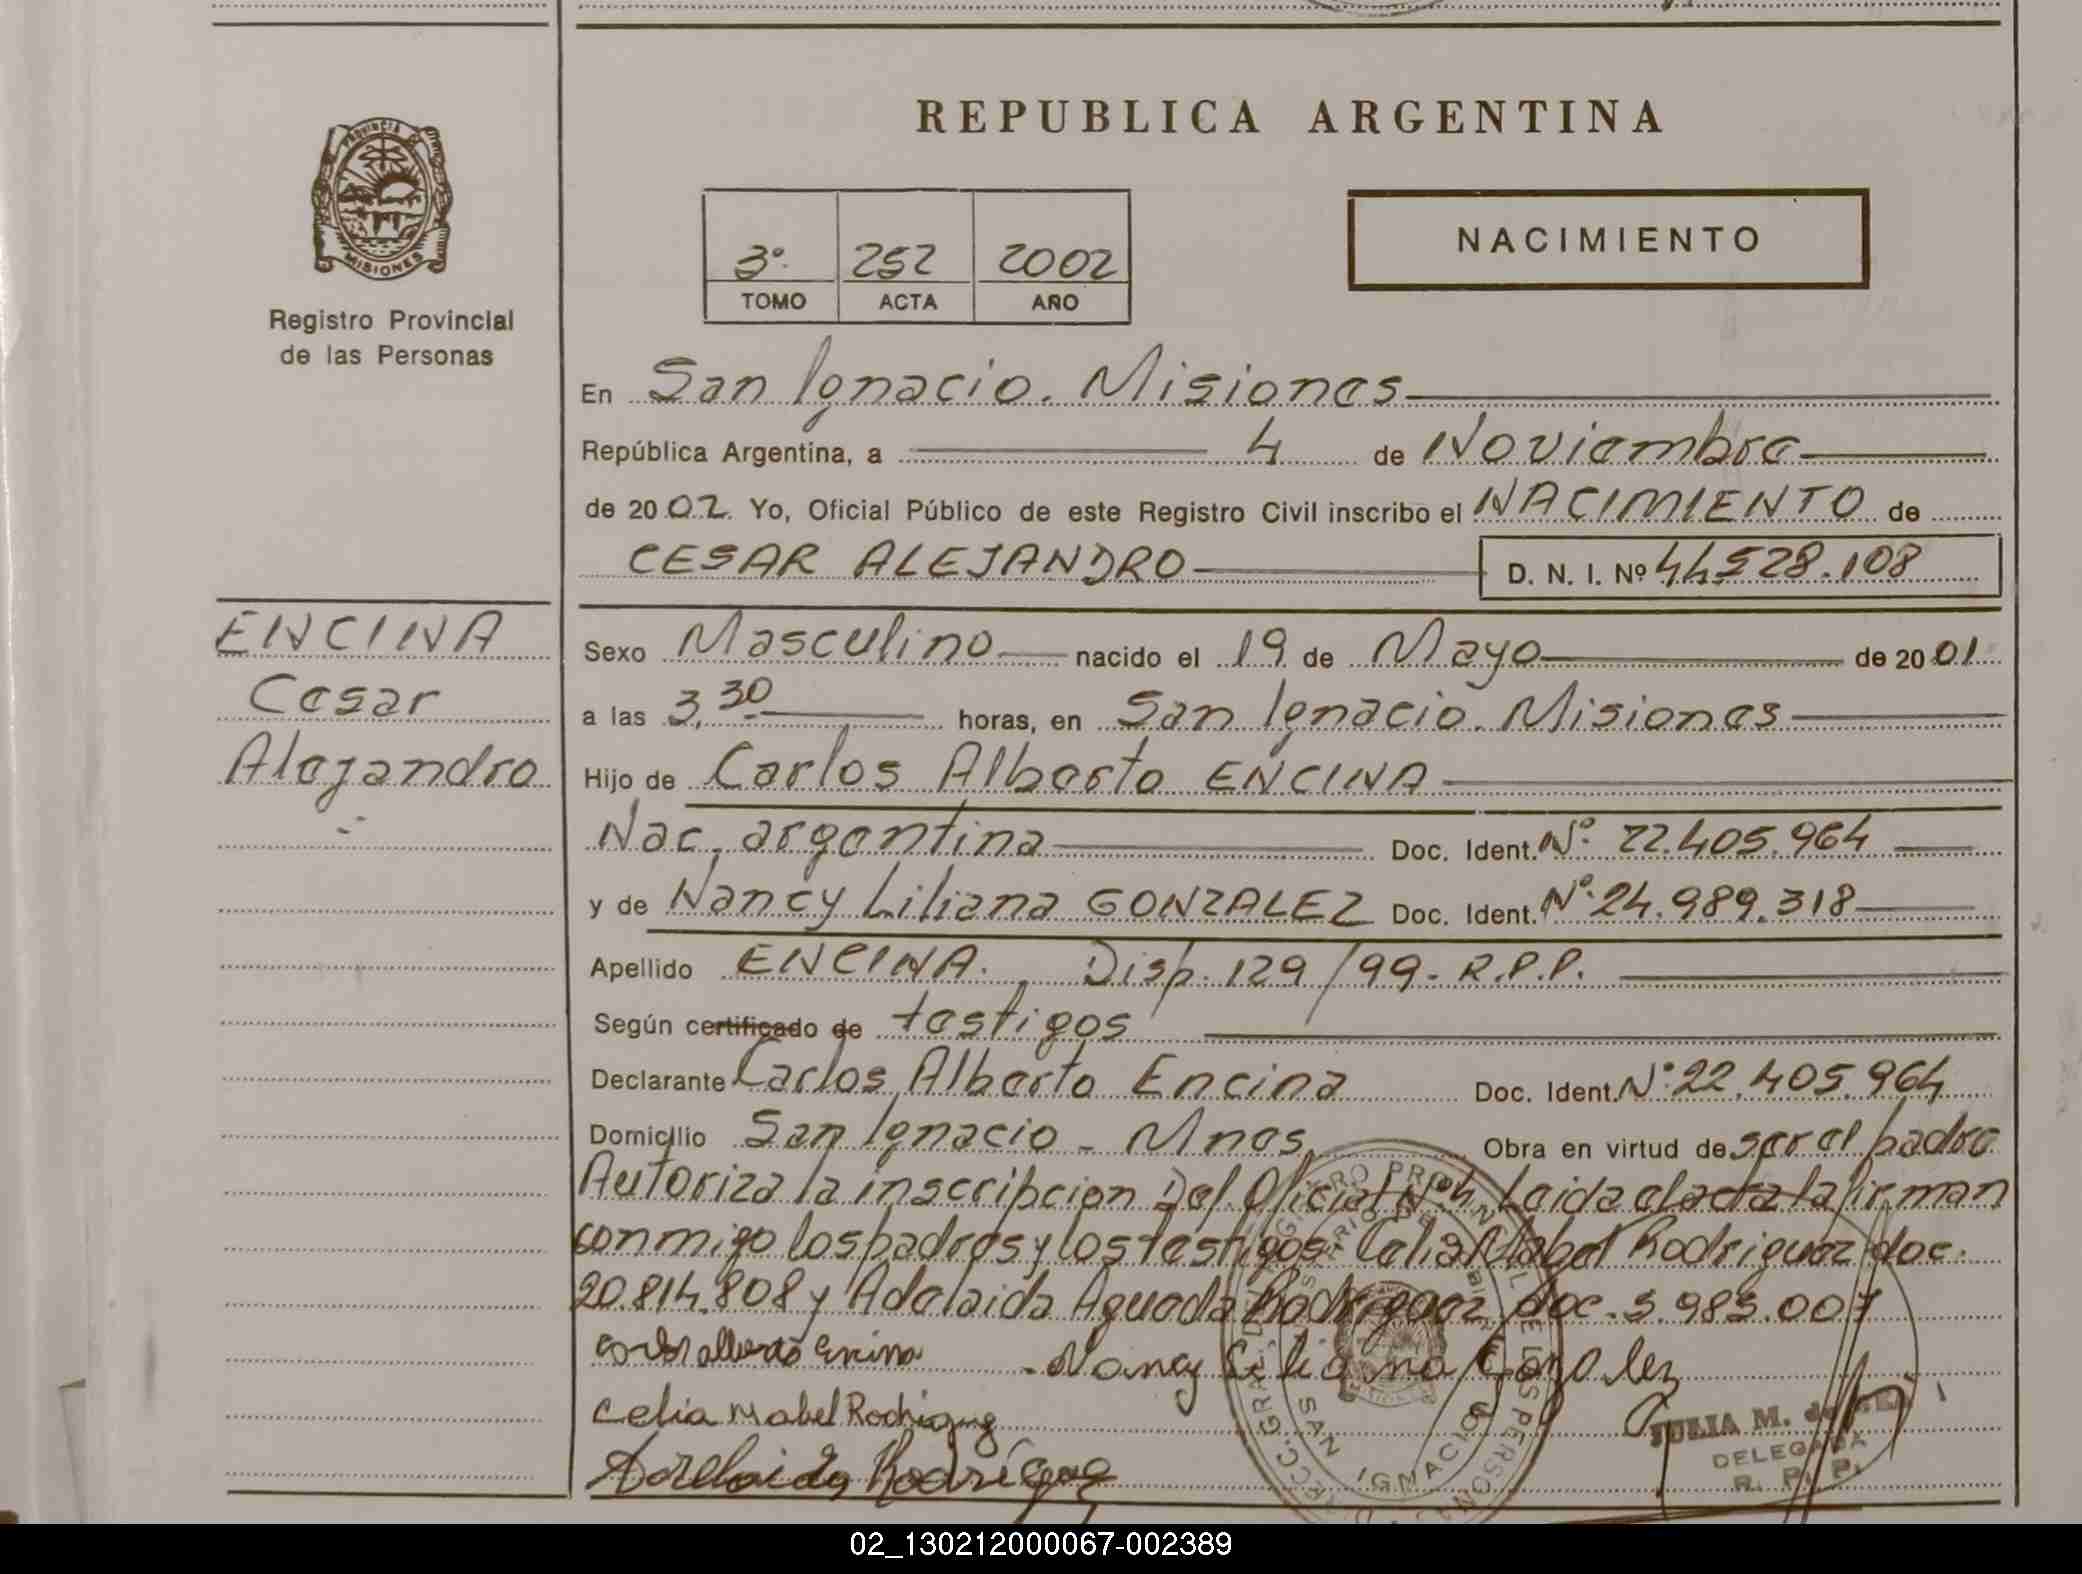 REPUBLICA ARGENTINA
PROVINCIA DE MISIONES
Registro Provincial
de las Personas
3º 252 2002
TOMO ACTA AÑO
NACIMIENTO
En San Ignacio. Misiones
República Argentina, a 4 de Noviembre
de 2002. Yo, Oficial Público de este Registro Civil inscribo el NACIMIENTO de
CESAR ALEJANDRO D. N. I. Nº 44528.108
ENCINA
Cesar
Alejandro
Sexo Masculino nacido el 19 de Mayo de 2001
a las 3,30 horas, en San Ignacio. Misiones
Hijo de Carlos Alberto ENCINA
Nac. argentina Doc. Ident. Nº 22.405.964
y de Nancy Liliana GONZALEZ Doc. Ident. Nº 24.989.318
Apellido ENCINA. Disp. 129/99- R.P.P.
Según certificado de testigos
Declarante Carlos Alberto Encina Doc. Ident. Nº 22.405.964
Domicilio San Ignacio - Mnes. Obra en virtud de ser el padre
Autoriza la inscripcion Del. Oficial Nº4 Leida el acta la firman
conmigo los padres y los testigos: Celia Mabel Rodriguez doc.
20.814.808 y Adelaida Agueda Rodriguez doc. 5.985.007
Carlos alberto Encina Nancy Liliana Gonzalez
Celia Mabel Rodriguez
Adelaida Rodríguez
SAN IGNACIO
JULIA M. de
DELEGADA
R. P. P.
02_130212000067-002389